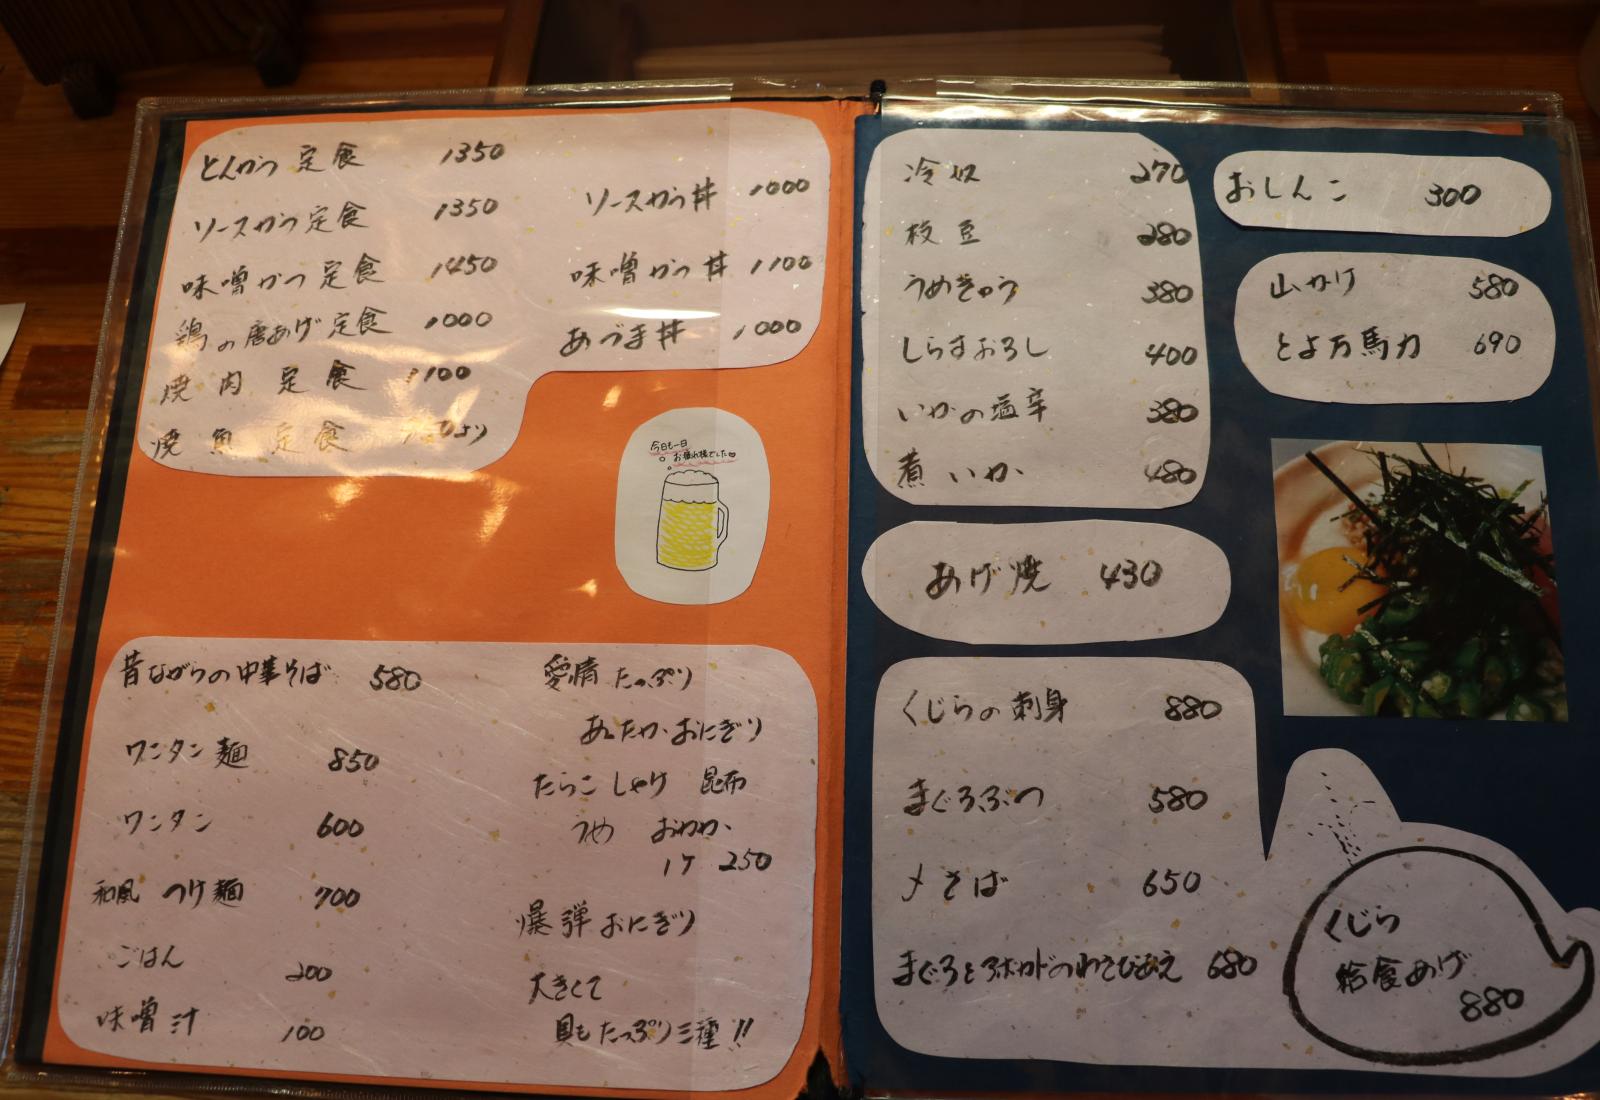 とんかつ定食 1350
ソースかつ定食 1350
味噌かつ定食 1450
鶏の唐あげ定食 1000
焼肉定食 1100
焼魚定食 より
ソースかつ丼 1000
味噌かつ丼 1100
あづま丼 1000
今日も一日
お疲れ様でした
昔ながらの中華そば 580
ワンタン麺 850
ワンタン 600
和風つけ麺 700
ごはん 200
味噌汁 100
愛情たっぷり
あったかおにぎり
たらこ しゃけ 昆布
うめ おかか
1ケ 250
爆弾おにぎり
大きくて
具もたっぷり三種!!
冷奴 270
枝豆 280
うめきゅう 380
しらすおろし 400
いかの塩辛 380
煮いか 480
あげ焼 430
くじらの刺身 880
まぐろぶつ 580
〆さば 650
まぐろとアボカドのわさびあえ 680
おしんこ 300
山かけ 580
とよ万馬力 690
くじら
給食あげ
880